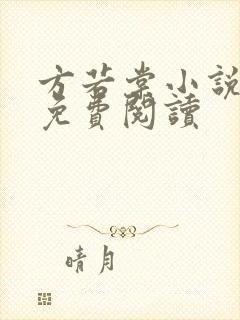 方若棠小說
免費閱讀
晴月